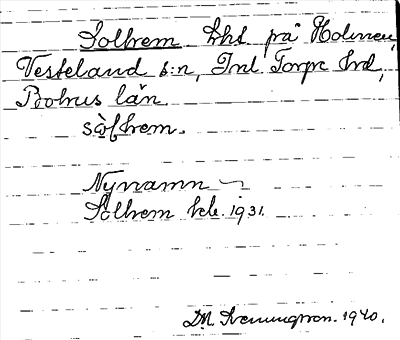 Solhem lht på Holmen,
Vesteland s:n, Inl. Torpe hd,
Bohus län.
sòlhem.
Nynamn
Solhem kck. 1931.
D.M. Svenningsson. 1940.